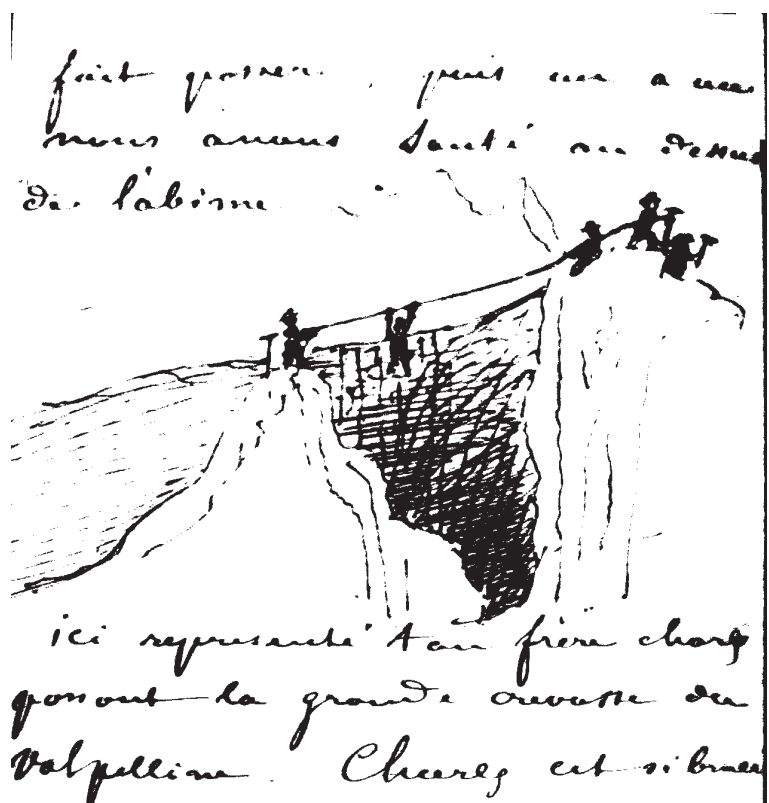 fait passer. puis un a une
nous avons sauté au dessus
de l'abime
ici representé ton frère charles
passant la grande crevasse du
Valpelline. Charles est si